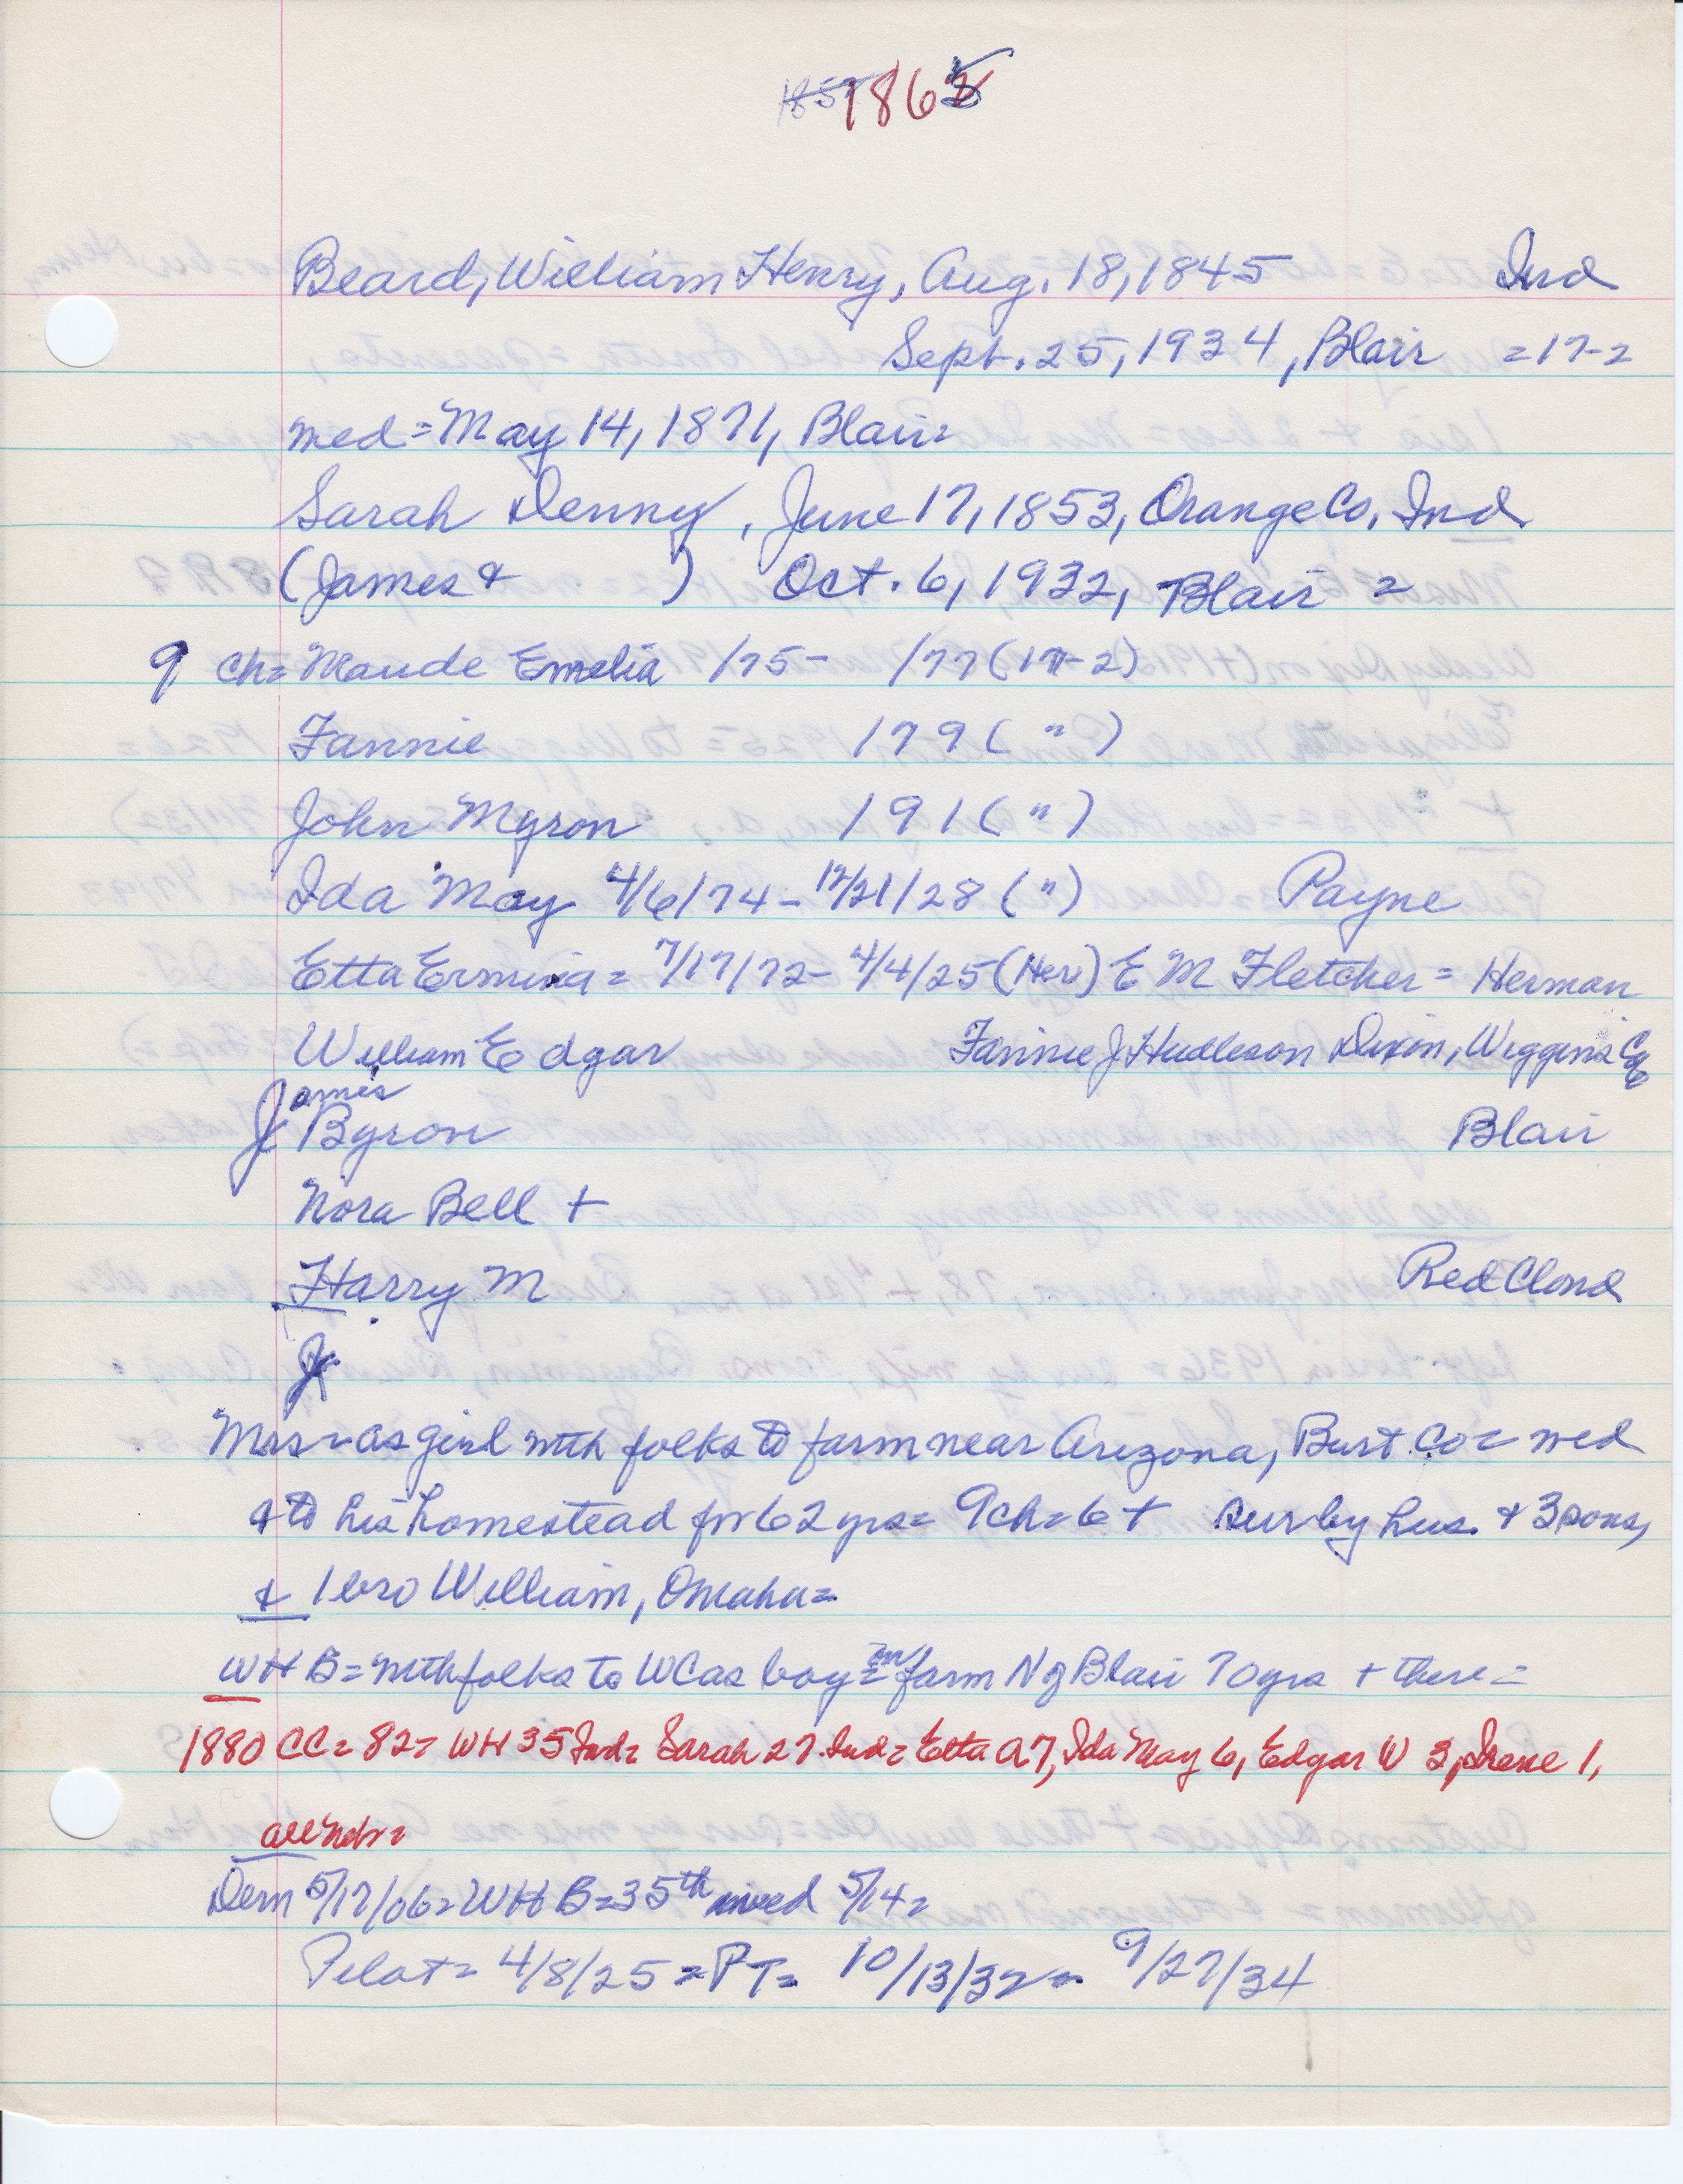 1857 1865
Beard, William Henry, Aug. 18, 1845 Ind
Sept. 25, 1934, Blair =17-2
med = May 14, 1871, Blair=
Sarah Denny, June 17, 1853, Orange Co, Ind
(James & ) Oct. 6, 1932, Blair =
9 ch= Maude Emelia /75- /77 (17-2)
Fannie 179 ( " )
John Myron 191 ( " )
Ida May 4/6/74 - 12/21/28 ( " ) Payne
Etta Ermina = 7/17/72 - 4/4/25 (Her) E M Fletcher = Herman
William Edgar Fannie J Hudleson Dixon, Wiggins
James
Byron Blair
Nora Bell +
Harry M Red Cloud
Mrs = as girl with folks to farm near Arizona, Burt Co = med
& to his homestead for 62 yrs = 9 ch = 6 + sur by hus. & 3 sons,
& 1 bro William, Omaha=
W H B = with folks to WC as boy = on farm N of Blair 70 yrs + there =
1880 CC = 82 = WH 35 Ind = Sarah 27 Ind = Etta A 7, Ida May 6, Edgar W 3, Irene 1,
all Neb =
Dem 5/17/06 = W H B = 35th 5/14 =
Pilot = 4/8/25 = PT = 10/13/32 = 9/27/34